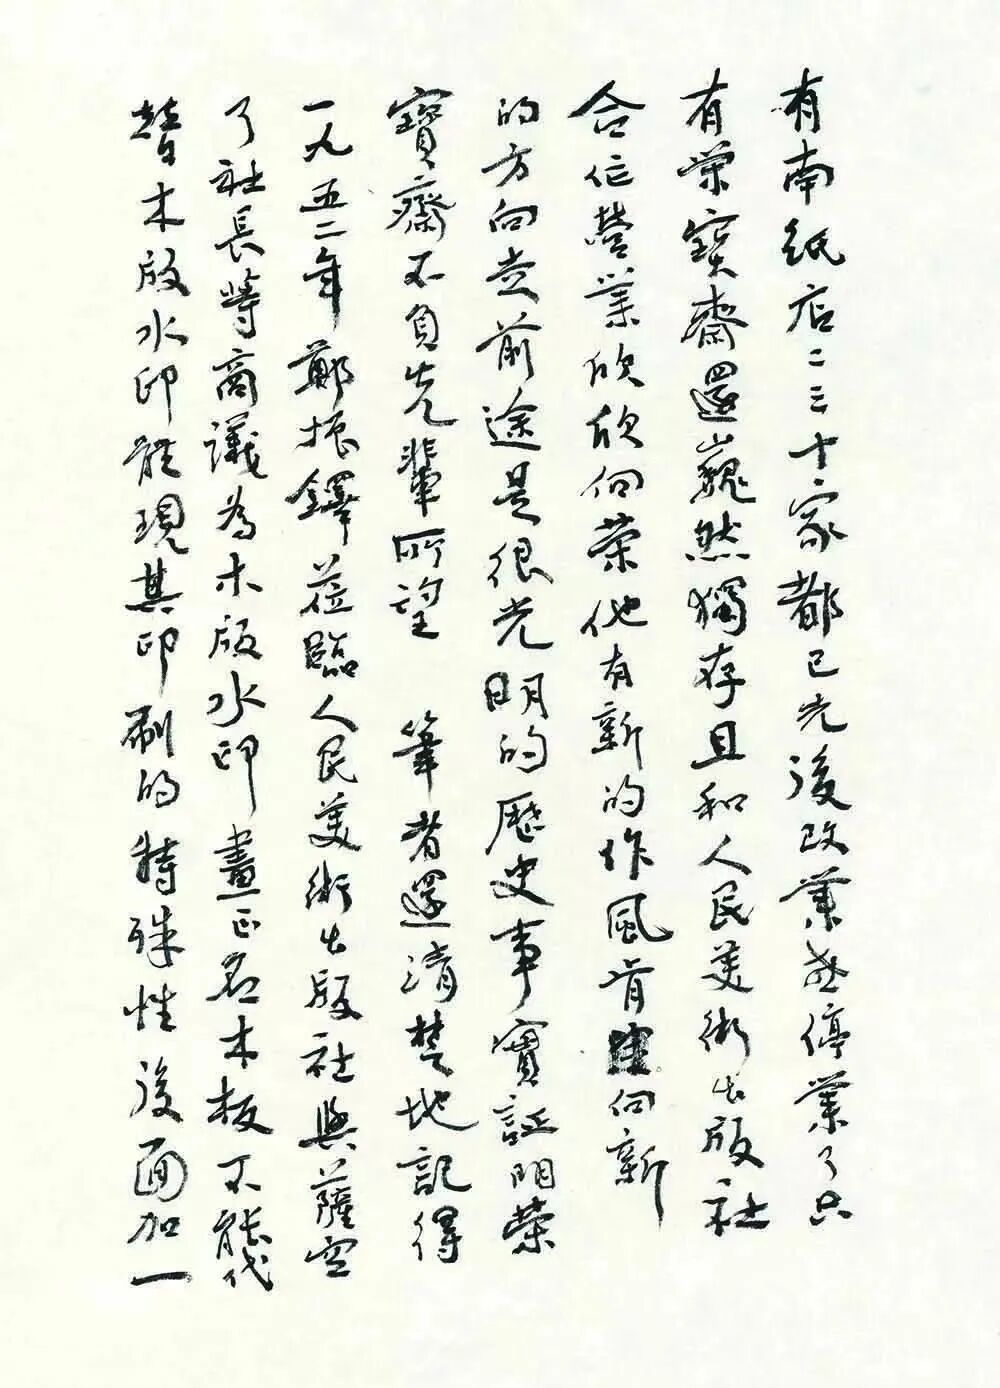 有南紙店二三十家都已先後改業或停業了只
有榮寶齋還巍然獨存且和人民美術出版社
合作營業欣欣向榮他有新的作風肯向新
的方向走前途是很光明的歷史事實証明榮
寶齋不負先輩所望 筆者還清楚地記得
一九五二年鄭振鐸蒞臨人民美術出版社與薩空
了社長等商議為木版水印畫正名木板不能代
替木版水印能現其印刷的特殊性後面加一